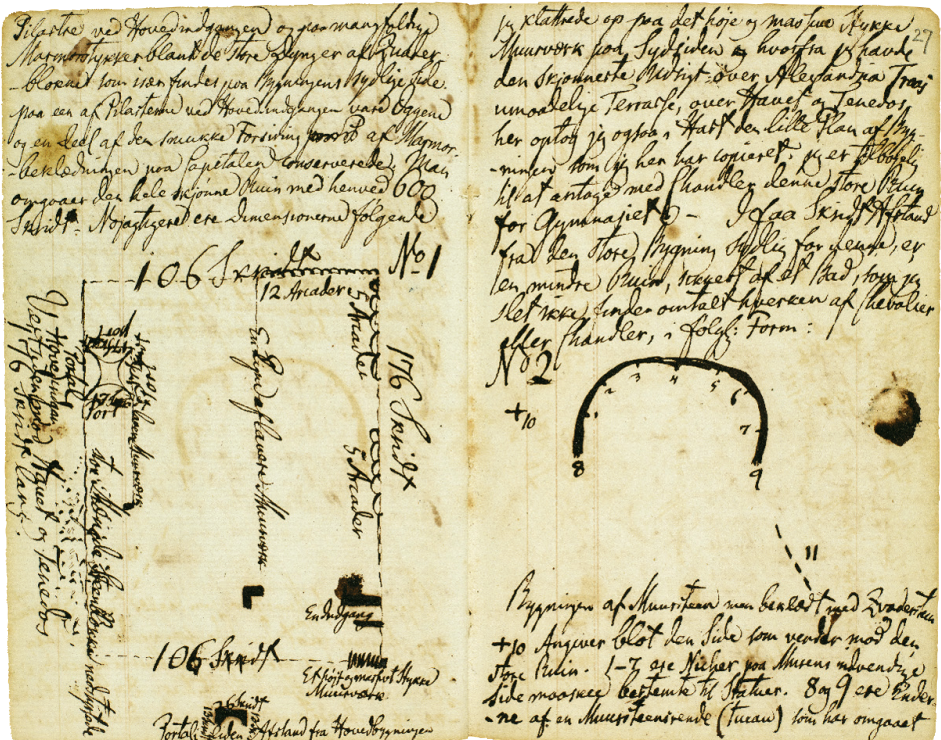 Pilastre ved Hovedindgangen og paa mangfoldig
Marmorstykker blandt de store Dynger af Quader-
-blokke som især findes paa Bygningens sydlige Side
paa een af Pilasterne ved Hovedindgangen vare Basen
og en Deel af den smukke Forsiring af Marmor
-beklædningen paa Capitælen conserverede. Man
omgaaer den hele skjønne Ruin med henved 600
Skridt. Nøjagtigere ere dimensionerne følgende
No 1
106 Skridt
12 Arcader
5 Arcader
176 Skridt
5 Arcader
En Linje af lavere Muurværk
Portal
Port
Vestsiden imod Havet og Tenedos
76 Skridt lang
En Indgang
106 Skridt
Et højt og massivt Stykke
Muurværk
Portal liden Afstand fra Hovedbygningen
29
jeg klattrede op paa det høje og massive Stykke
Muurværk paa Sydsiden hvorfra jeg havde
den skjønneste Udsigt over Alexandria Troas
umaadelige Terrasse, over Havet og Tenedos,
her optog jeg ogsaa i Hast den lille Plan af Byg-
-ningen som jeg her har copieret. jeg er tilbøjelig
til at antage med Chandler denne store Ruin
for Gymnasiet. - I faa Skridt Afstand
fra den store Bygning sydlig for denne, er
en mindre Ruin, sikkert af et Bad, som jeg
slet ikke finder omtalt hverken af Chevalier
eller Chandler, i følg: Form:
No 2
+10
1
2
3
4
5
6
7
8
9
11
Bygningen af Muursteen men beklædt med Qvadersteen
+10 Angiver blot den Side som vender mod den
store Ruin. 1-7 ere Nicher paa Murens indvendige
Side maaskee bestemte til Statuer. 8 og 9 ere Ender-
-ne af en Muursteensrende (tueau) som har omgaaet